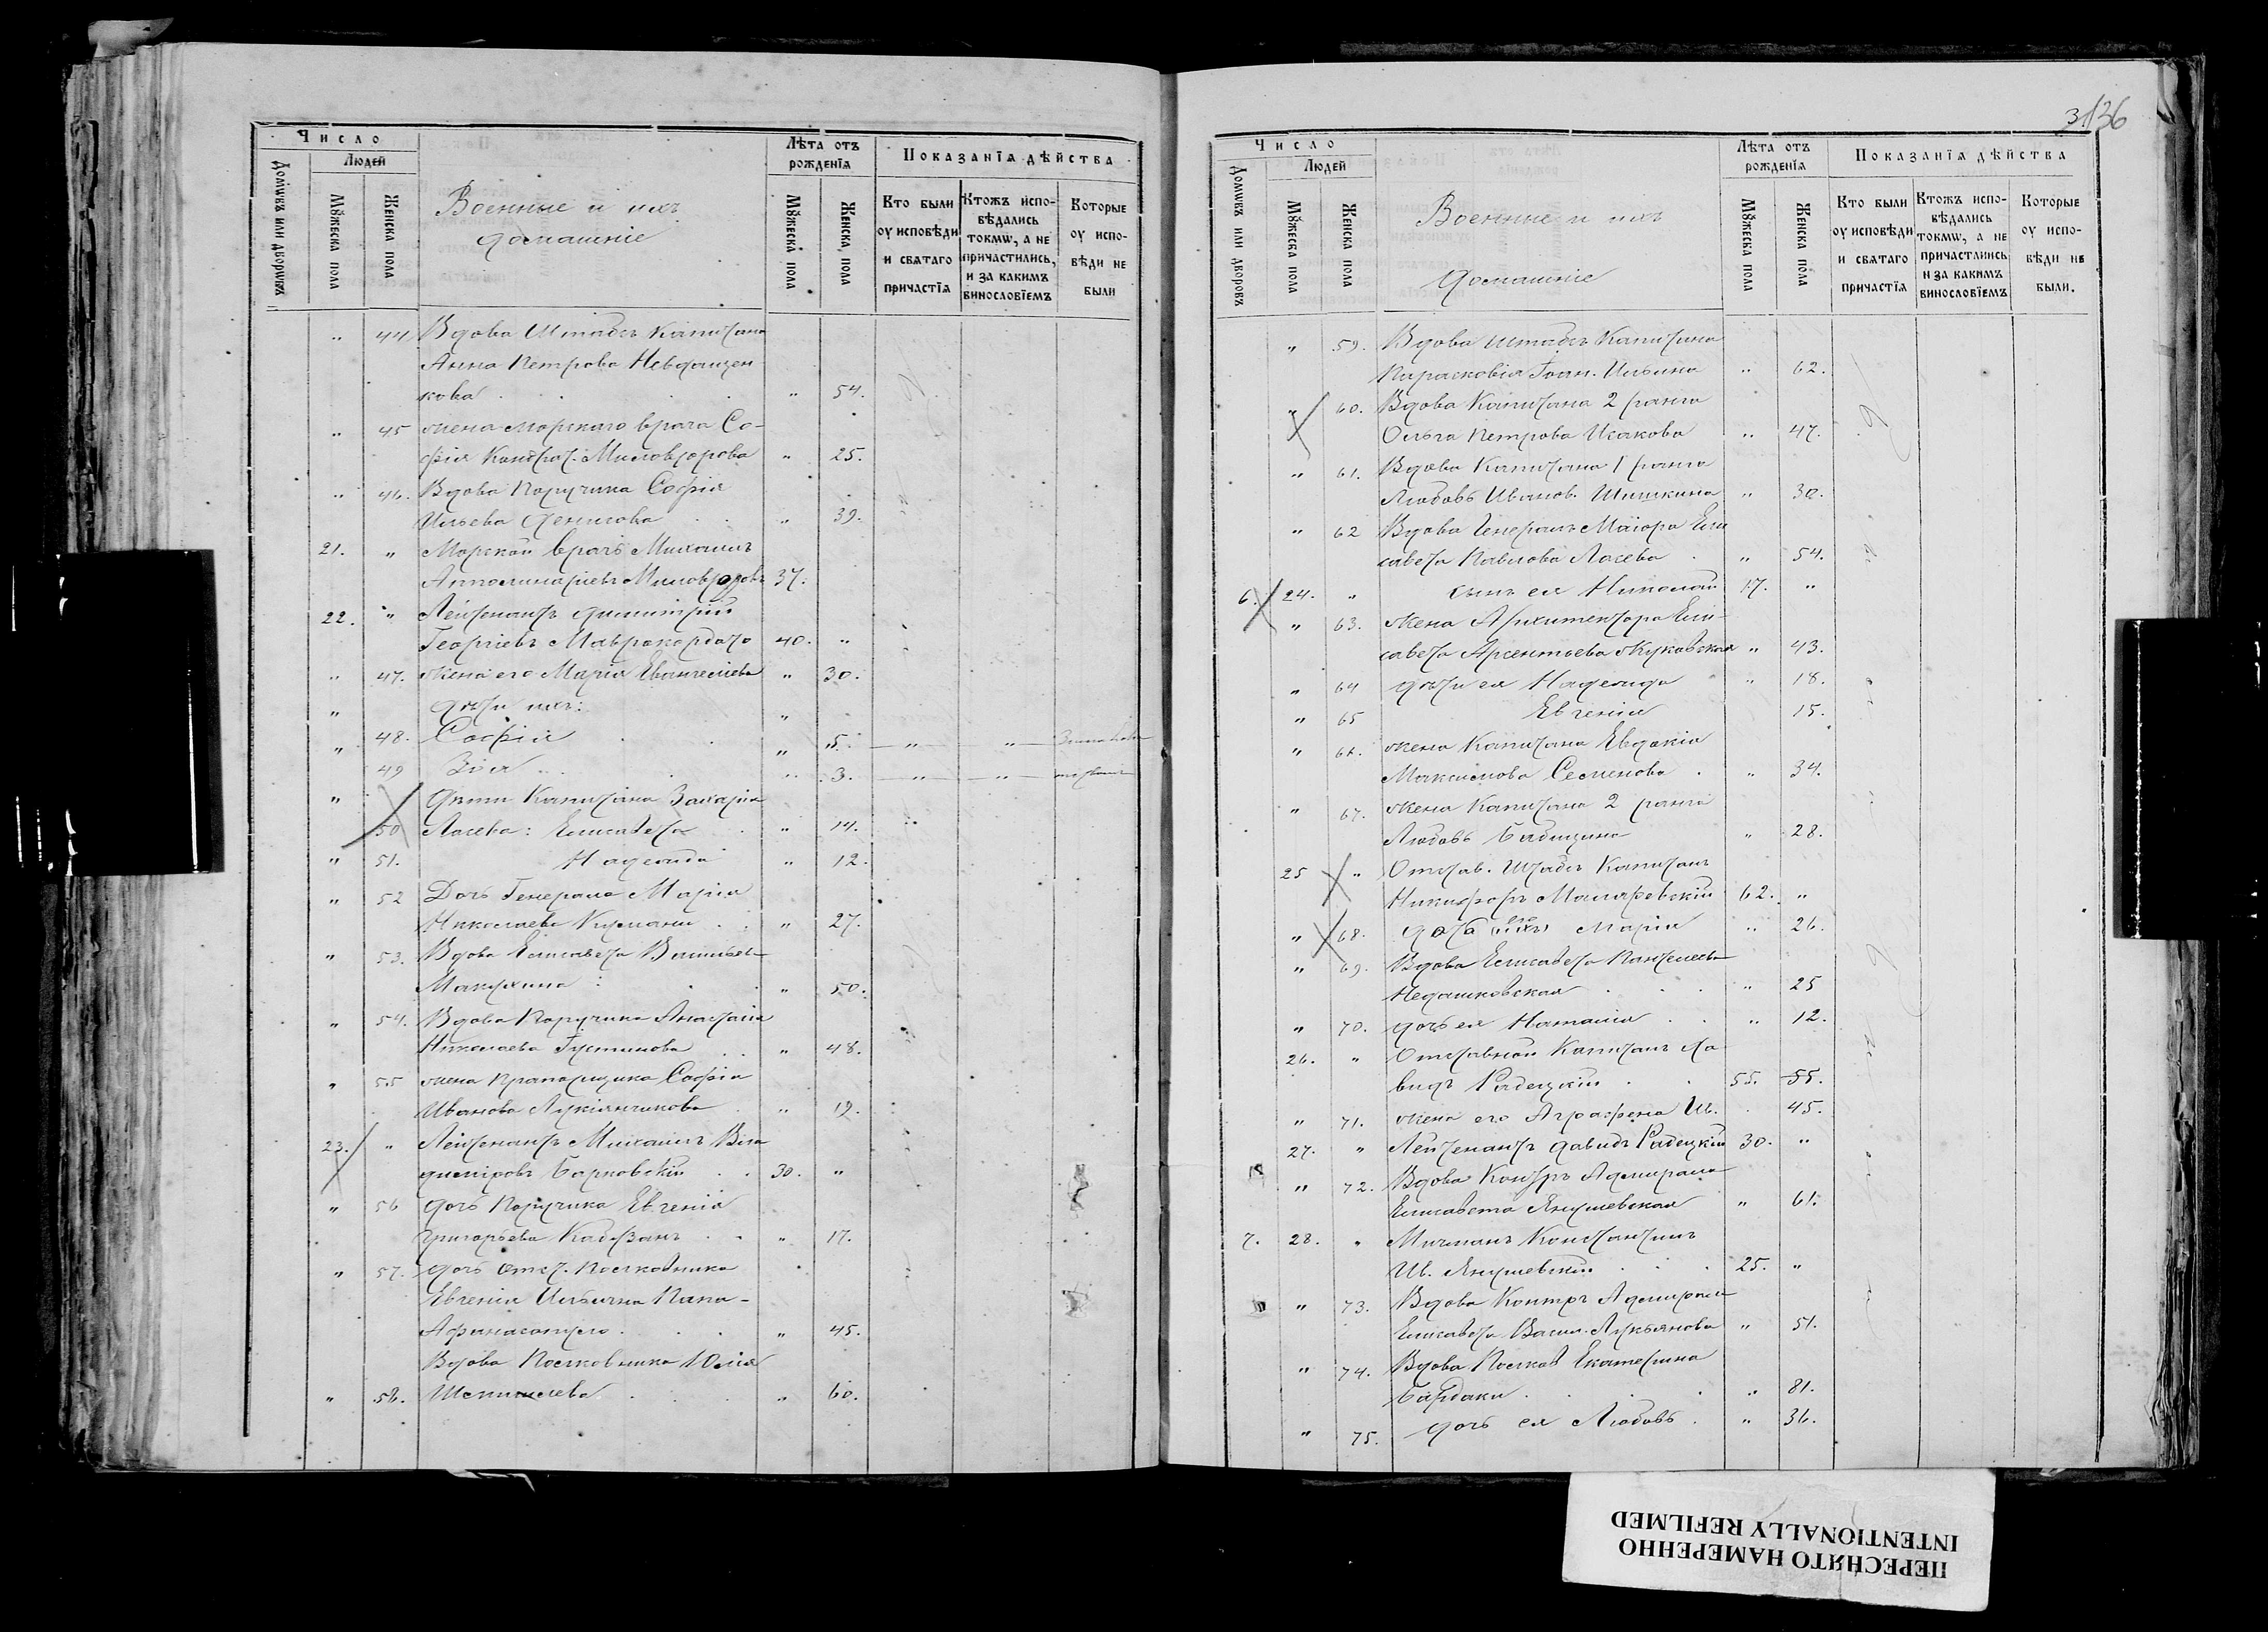 Число
Людей
Домѡвъ или дворѡвъ
Мꙋжеска пола
Женска пола
Военные и ихъ
домашніе
Лѣта отъ
рожденїѧ
Мꙋжеска пола
Женска пола
Показанїѧ дѣйства
Кто были
оу исповѣди
и свѧтаго
причастїѧ
Ктожъ испо-
вѣдались
токмѡ, а не
причастились,
и за какимъ
винословїемъ
Которые
оу испо-
вѣди не
были
„ 44 Вдова Штабсъ Капитана
Анна Петрова
кова „ 54.
„ 45 жена морскаго врача Со-
фія Кондрат. Миловзорова „ 25.
„ 46. Вдова Поручика Софія
Ильева Денисова „ 39.
21. „ Морской врачъ Михаилъ
Апполинаріевъ Миловзоровъ 37.
22. „ Лейтенантъ Димитрій
Георгіевъ Маврокордато 40. „
„ 47. жена его Марія Евангелиева „ 30.
„ дѣти ихъ: „
„ 48. Софія „ 5. „ „
49 Зоя „ 3. „ „
„ Дѣти Капитана Захарія
50 Лосева: Елисавета „ 14.
„ 51. Надежда „ 12.
„ 52 Дочь Генерала Марія
Николаева „ 27.
„ 53. Вдова Елисавета Васильев-
Макухина „ 50.
„ 54. Вдова Поручика Анастасія
Николаева „ 48.
„ 55 жена Прапорщика Софія
Иванова Лукіянчикова „ 19.
23. „ Лейтенантъ Михаилъ Вла
диміровъ Барковскій 30. „
„ 56 дочь Поручика Евгенія
Григорьева „ 17.
„ 57. дочь отст. Полковника
Евгенія Ильична Папа-
Афанасопуло „ 45.
Вдова Полковника Юлія
„ 58. „ 60.
3136
Число
Людей
Домѡвъ или дворовъ
Мꙋжеска пола
Женска пола
Военные и ихъ
домашніе
Лѣта отъ
рожденїѧ
Мꙋжеска пола
Женска пола
Показанїѧ дѣйства
Кто были
оу исповѣди
и свѧтаго
причастїѧ
Ктожъ испо-
вѣдались
токмѡ, а не
причастлинсь
и за какимъ
винословїемъ
Которые
оу испо-
вѣди не
были.
„ 59. Вдова Штабсъ Капитана
Парасковія Іоан. Ильина „ 62.
„ 60. Вдова Капитана 2 ранга
Ольга Петрова Исакова „ 47.
„ 61. Вдова Капитана 1 ранга
Любовь Иванов. Шишкина „ 30.
„ 62 Вдова Генералъ Маіора Ели
савета Павлова Лосева „ 54.
6. 24. „ сынъ ея Николай 17. „
„ 63. жена Архитектора Ели-
савета Арсентьева Жуковская „ 43.
„ 64 дѣти ея Надежда „ 18.
„ 65 Евгенія 15.
„ 66. жена Капитана Евдокія
Максимова Семенова „ 34.
„ 67. жена Капитана 2 ранга
Любовь Бабицина „ 28.
25 „ Отстав. Штабсъ Капитанъ
Никифоръ Маляревскій 62. „
„ 68. дочь ихъ его Марія „ 26.
„ 69. Вдова Елисавета Пантелеева
Недашковская „ 25
„ 70. дочь ея Наталія „ 12.
26. „ Отставной Капитанъ Да
видъ Радецкій 55. 55.
„ 71. жена его Аграфена Ив. 45.
27. „ Лейтенантъ Давидъ Радецкій 30. „
„ 72. Вдова Контръ Адмирала
Елисавета Янушевская „ 61.
7. 28. „ Мичманъ Константинъ
Ив. Янушевскій 25. „
„ 73. Вдова Контръ Адмирала
Елисавета Васил. Лукьянова „ 51.
„ 74. Вдова Полков Екатерина
Бардаки „ 81.
„ 75. дочь ея Любовь „ 36.
ПЕРЕСНЯТО НАМЕРЕННО
INTENTIONALLY REFILMED